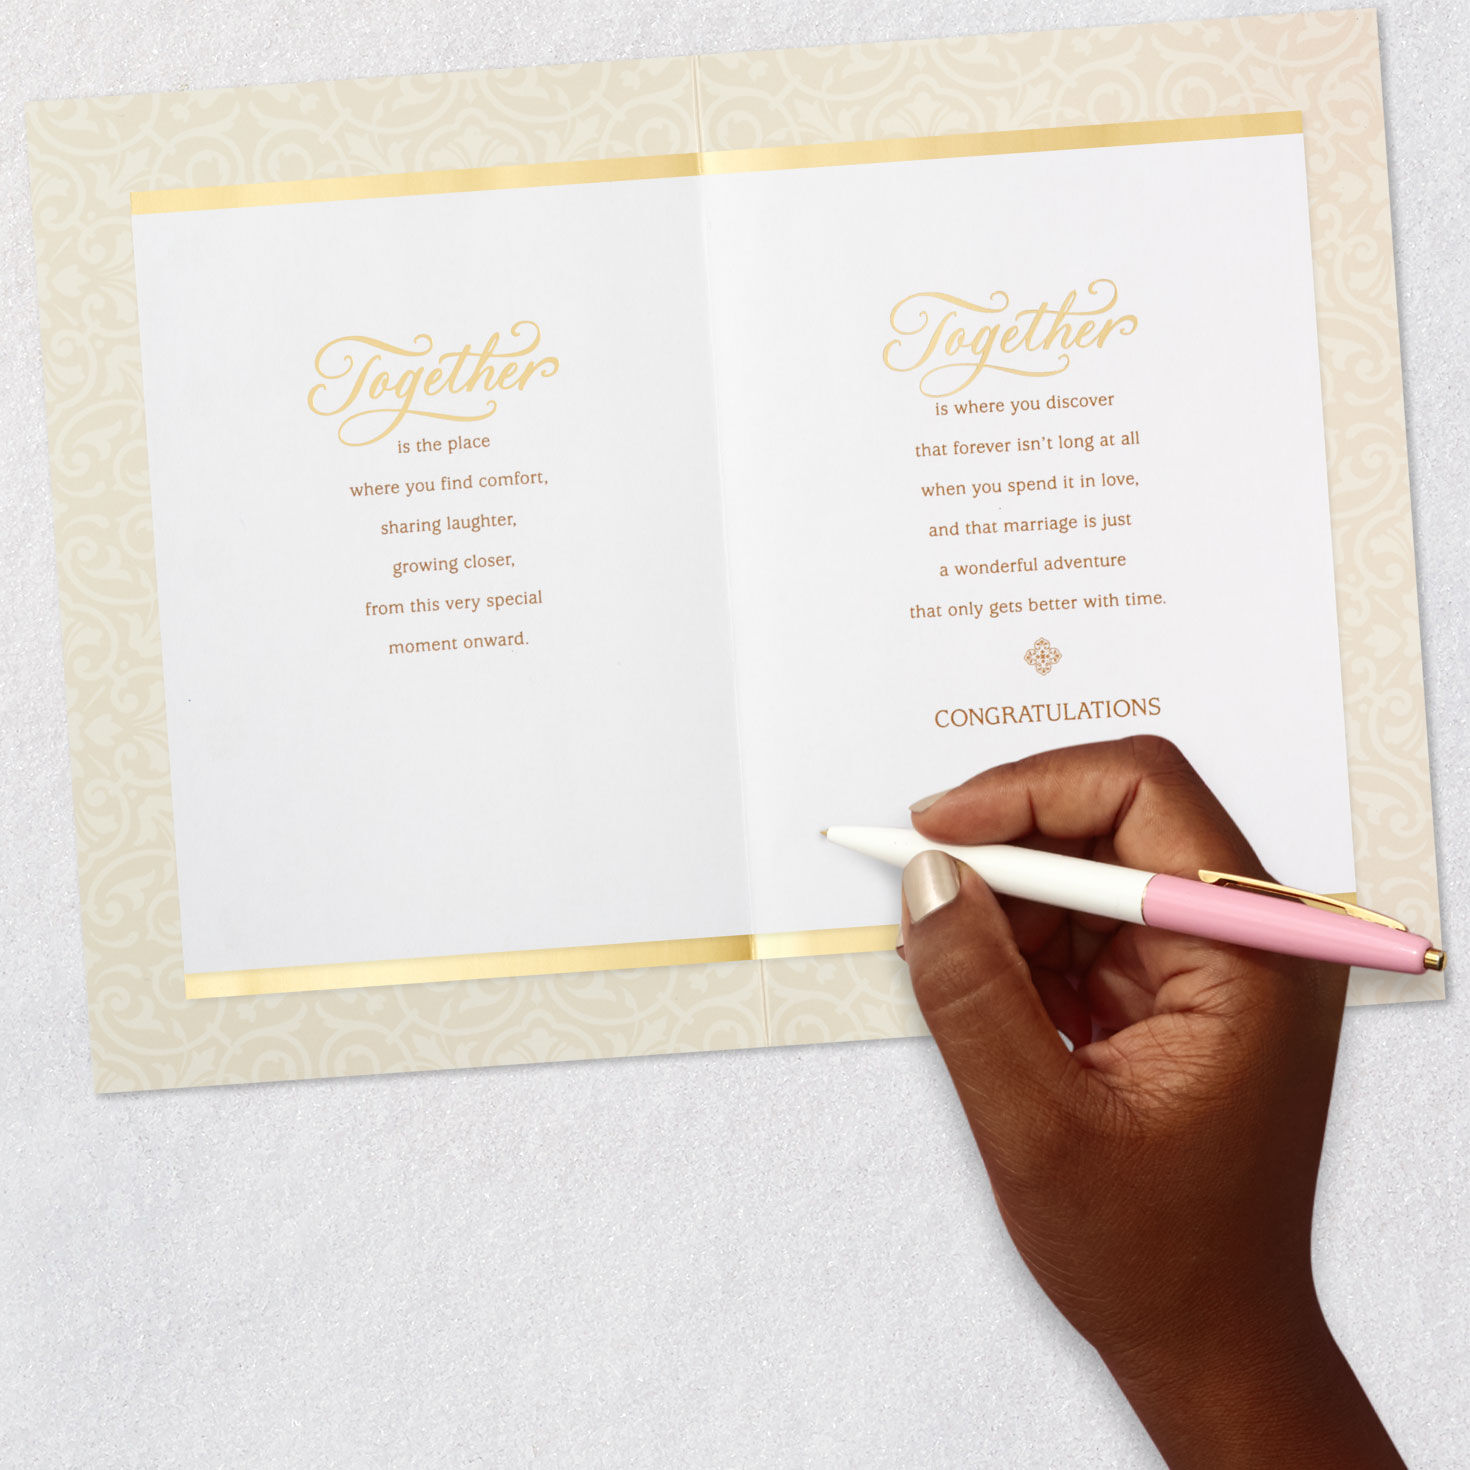 Together
is the place
where you find comfort,
sharing laughter,
growing closer,
from this very special
moment onward.
Together
is where you discover
that forever isn't long at all
when you spend it in love,
and that marriage is just
a wonderful adventure
that only gets better with time.
CONGRATULATIONS